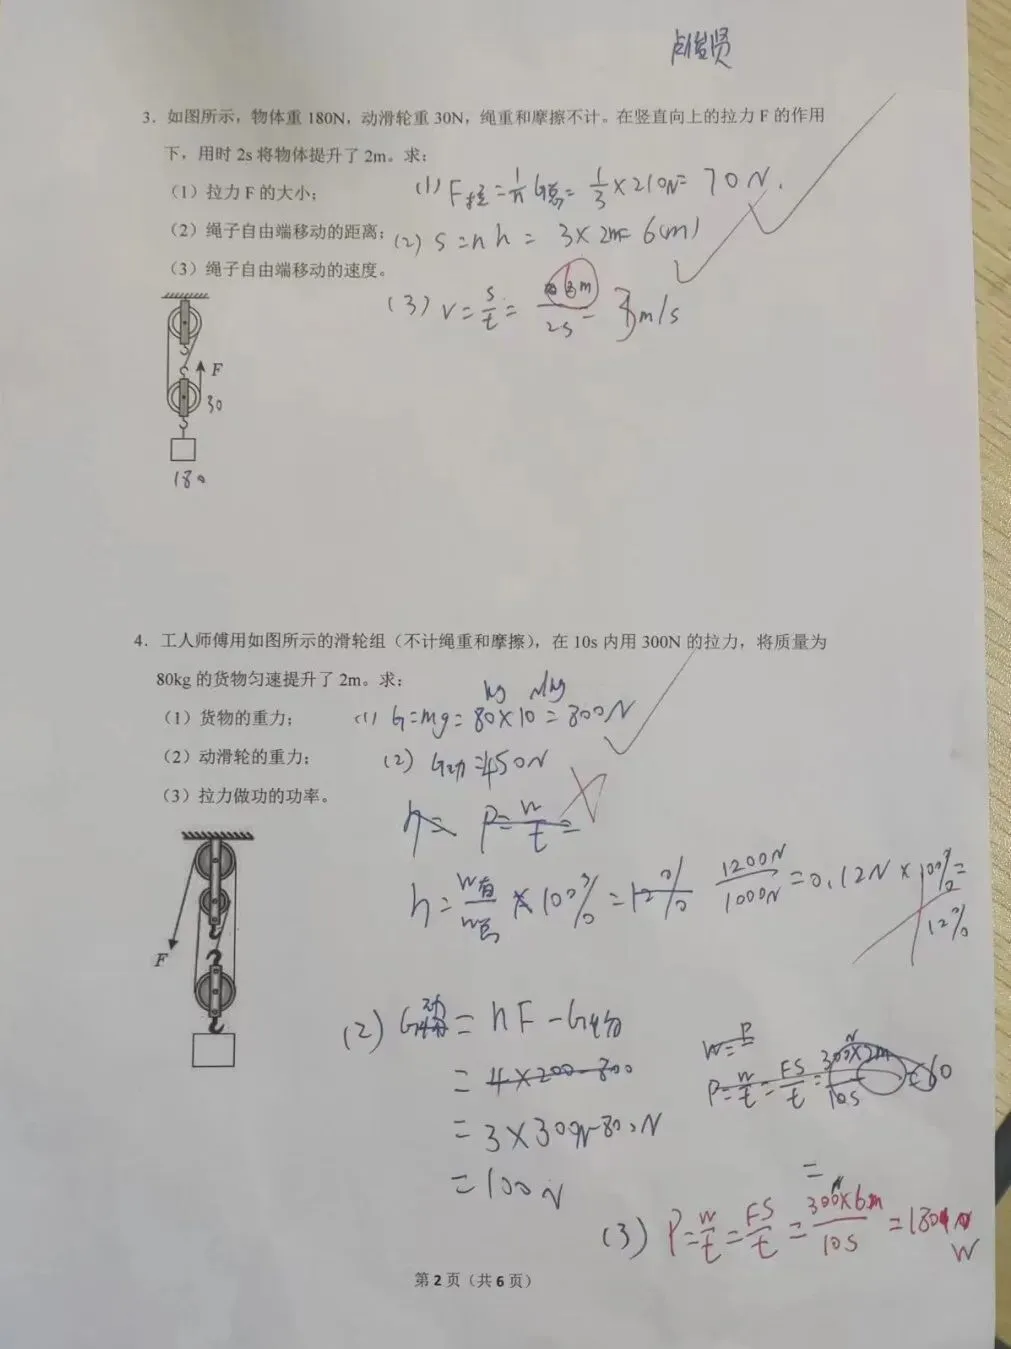 3. 如图所示，物体重 180N，动滑轮重 30N，绳重和摩擦不计。在竖直向上的拉力 F 的作用
下，用时 2s 将物体提升了 2m。求：
（1）拉力 F 的大小；
(1) F拉 = 1/n G总 = 1/3 × 210N = 70N.
（2）绳子自由端移动的距离；
(2) s = nh = 3 × 2m = 6(m)
（3）绳子自由端移动的速度。
(3) v = s/t = 6m/2s = 3m/s
F
30
180
4. 工人师傅用如图所示的滑轮组（不计绳重和摩擦），在 10s 内用 300N 的拉力，将质量为
80kg 的货物匀速提升了 2m。求：
kg N/kg
（1）货物的重力；
(1) G=mg=80×10=800N
（2）动滑轮的重力；
(2) G动=450N
（3）拉力做功的功率。
h= P=W/t=
η=W有/W总×100%=12% 1200N/1000N=0.12N×100%=
12%
F
(2) G动 = nF - G物
= 4×200-800
= 3×300N-800N
= 100N
W=P
P=W/t=FS/t=300N×2m/10s=60
=
(3) P=W/t=FS/t=300N×6m/10s=180W
第 2 页（共 6 页）